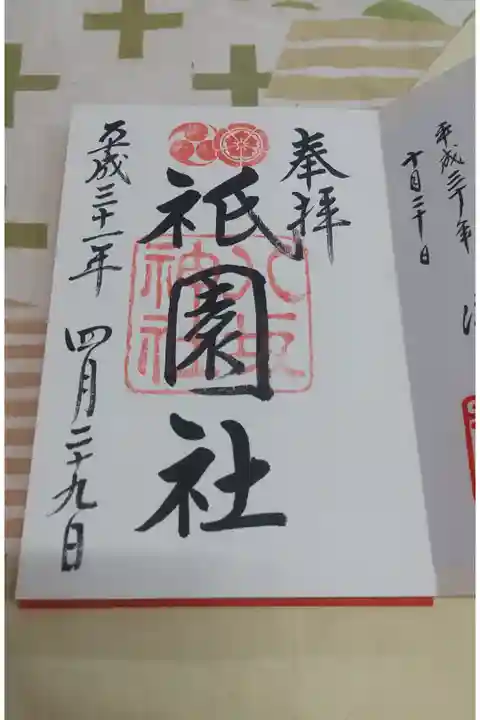 平成三十年
十月二十日
奉拝
八坂
神社
祇園社
平成三十一年 四月二十九日